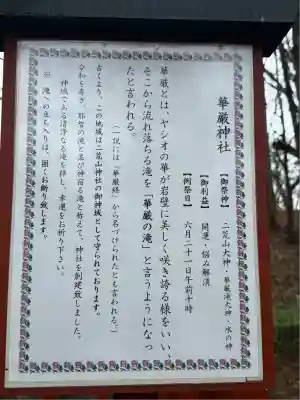 華厳神社
【御祭神】 二荒山大神・華厳滝大神・水の神
【御利益】 開運・悩み解消
【例祭日】 六月二十一日午前十時
華厳とは、ヤシオの華が岩壁に美しく咲き誇る様をいい、
そこから流れ落ちる滝を「華厳の滝」と言うようになっ
たと言われる。
(一説には「華厳経」から名づけられたとも言われる。)
古くより、この地域は二荒山神社の御神域として守られております。
令和を寿ぎ、那智の滝と並び神宿る滝と称えて、神社を創建致しました。
神域である清浄なる滝を拝し、幸運をお祈り下さい。
※ 滝への立ち入りは、固くお断り致します。